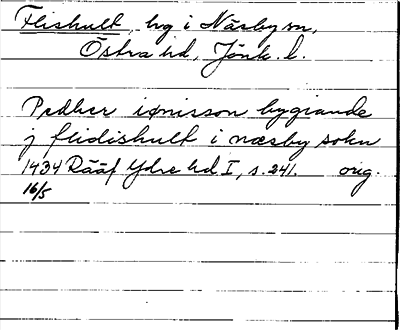 Flishult, hg i Näsby sn,
Östra hd, Jönk. l.
Pedher iønisson bygiande
j flidishult i næsby sokn
1434 Rääf Ydre hd I, s. 241. orig.
16/5